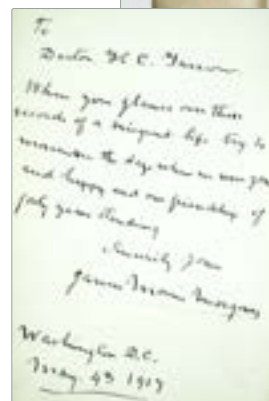 To
Doctor H. C. Yarrow
When you glance over these
records of a misspent life try to
remember the days when we were young
and happy and our friendship of
forty years standing
Sincerely Yours
James Morris Morgan
Washington D.C.
May 4th 1917